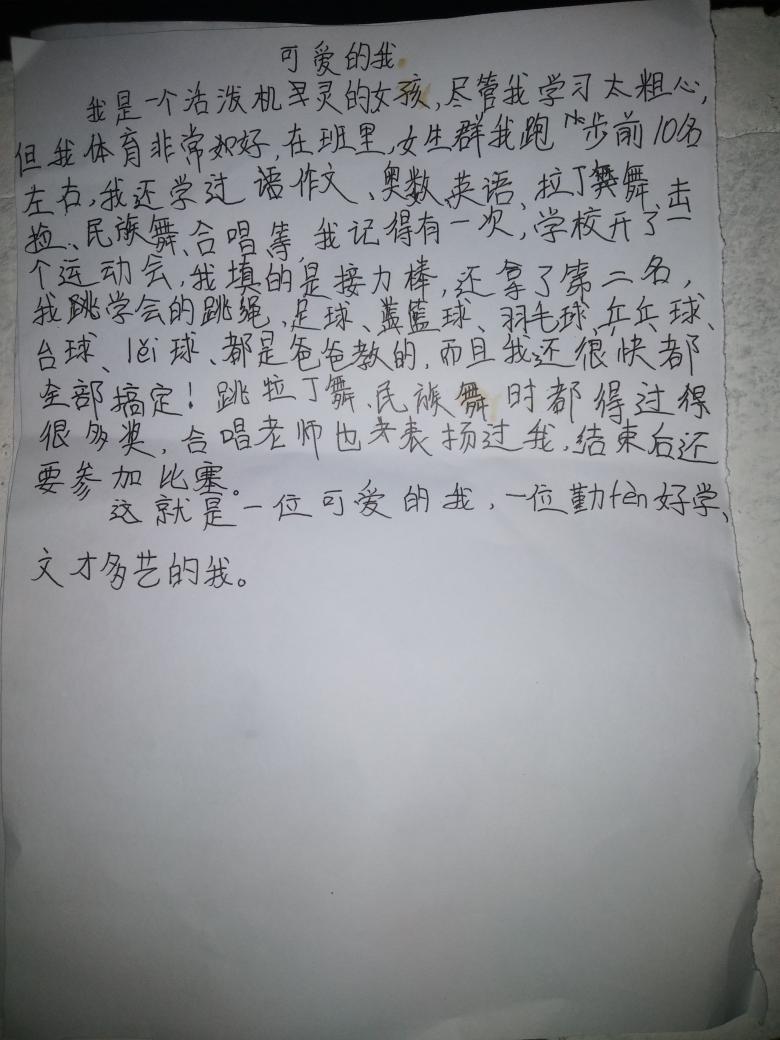 可爱的我
我是一个活泼机灵的女孩,尽管我学习太粗心,
但我体育非常好,在班里,女生群我跑步前10名
左右,我还学过语作文、奥数、英语、拉丁舞、击
剑、民族舞、合唱等,我记得有一次,学校开了一
个运动会,我填的是接力棒,还拿了第二名,
我跳学会的跳绳,足球、篮球、羽毛球、乒乓球、
台球、lěi球、都是爸爸教的,而且我还很快都
全部搞定!跳拉丁舞、民族舞时都得过得
很多奖,合唱老师也表扬过我,结束后还
要参加比塞。
这就是一位可爱的我,一位勤fèn好学、
文才多艺的我。